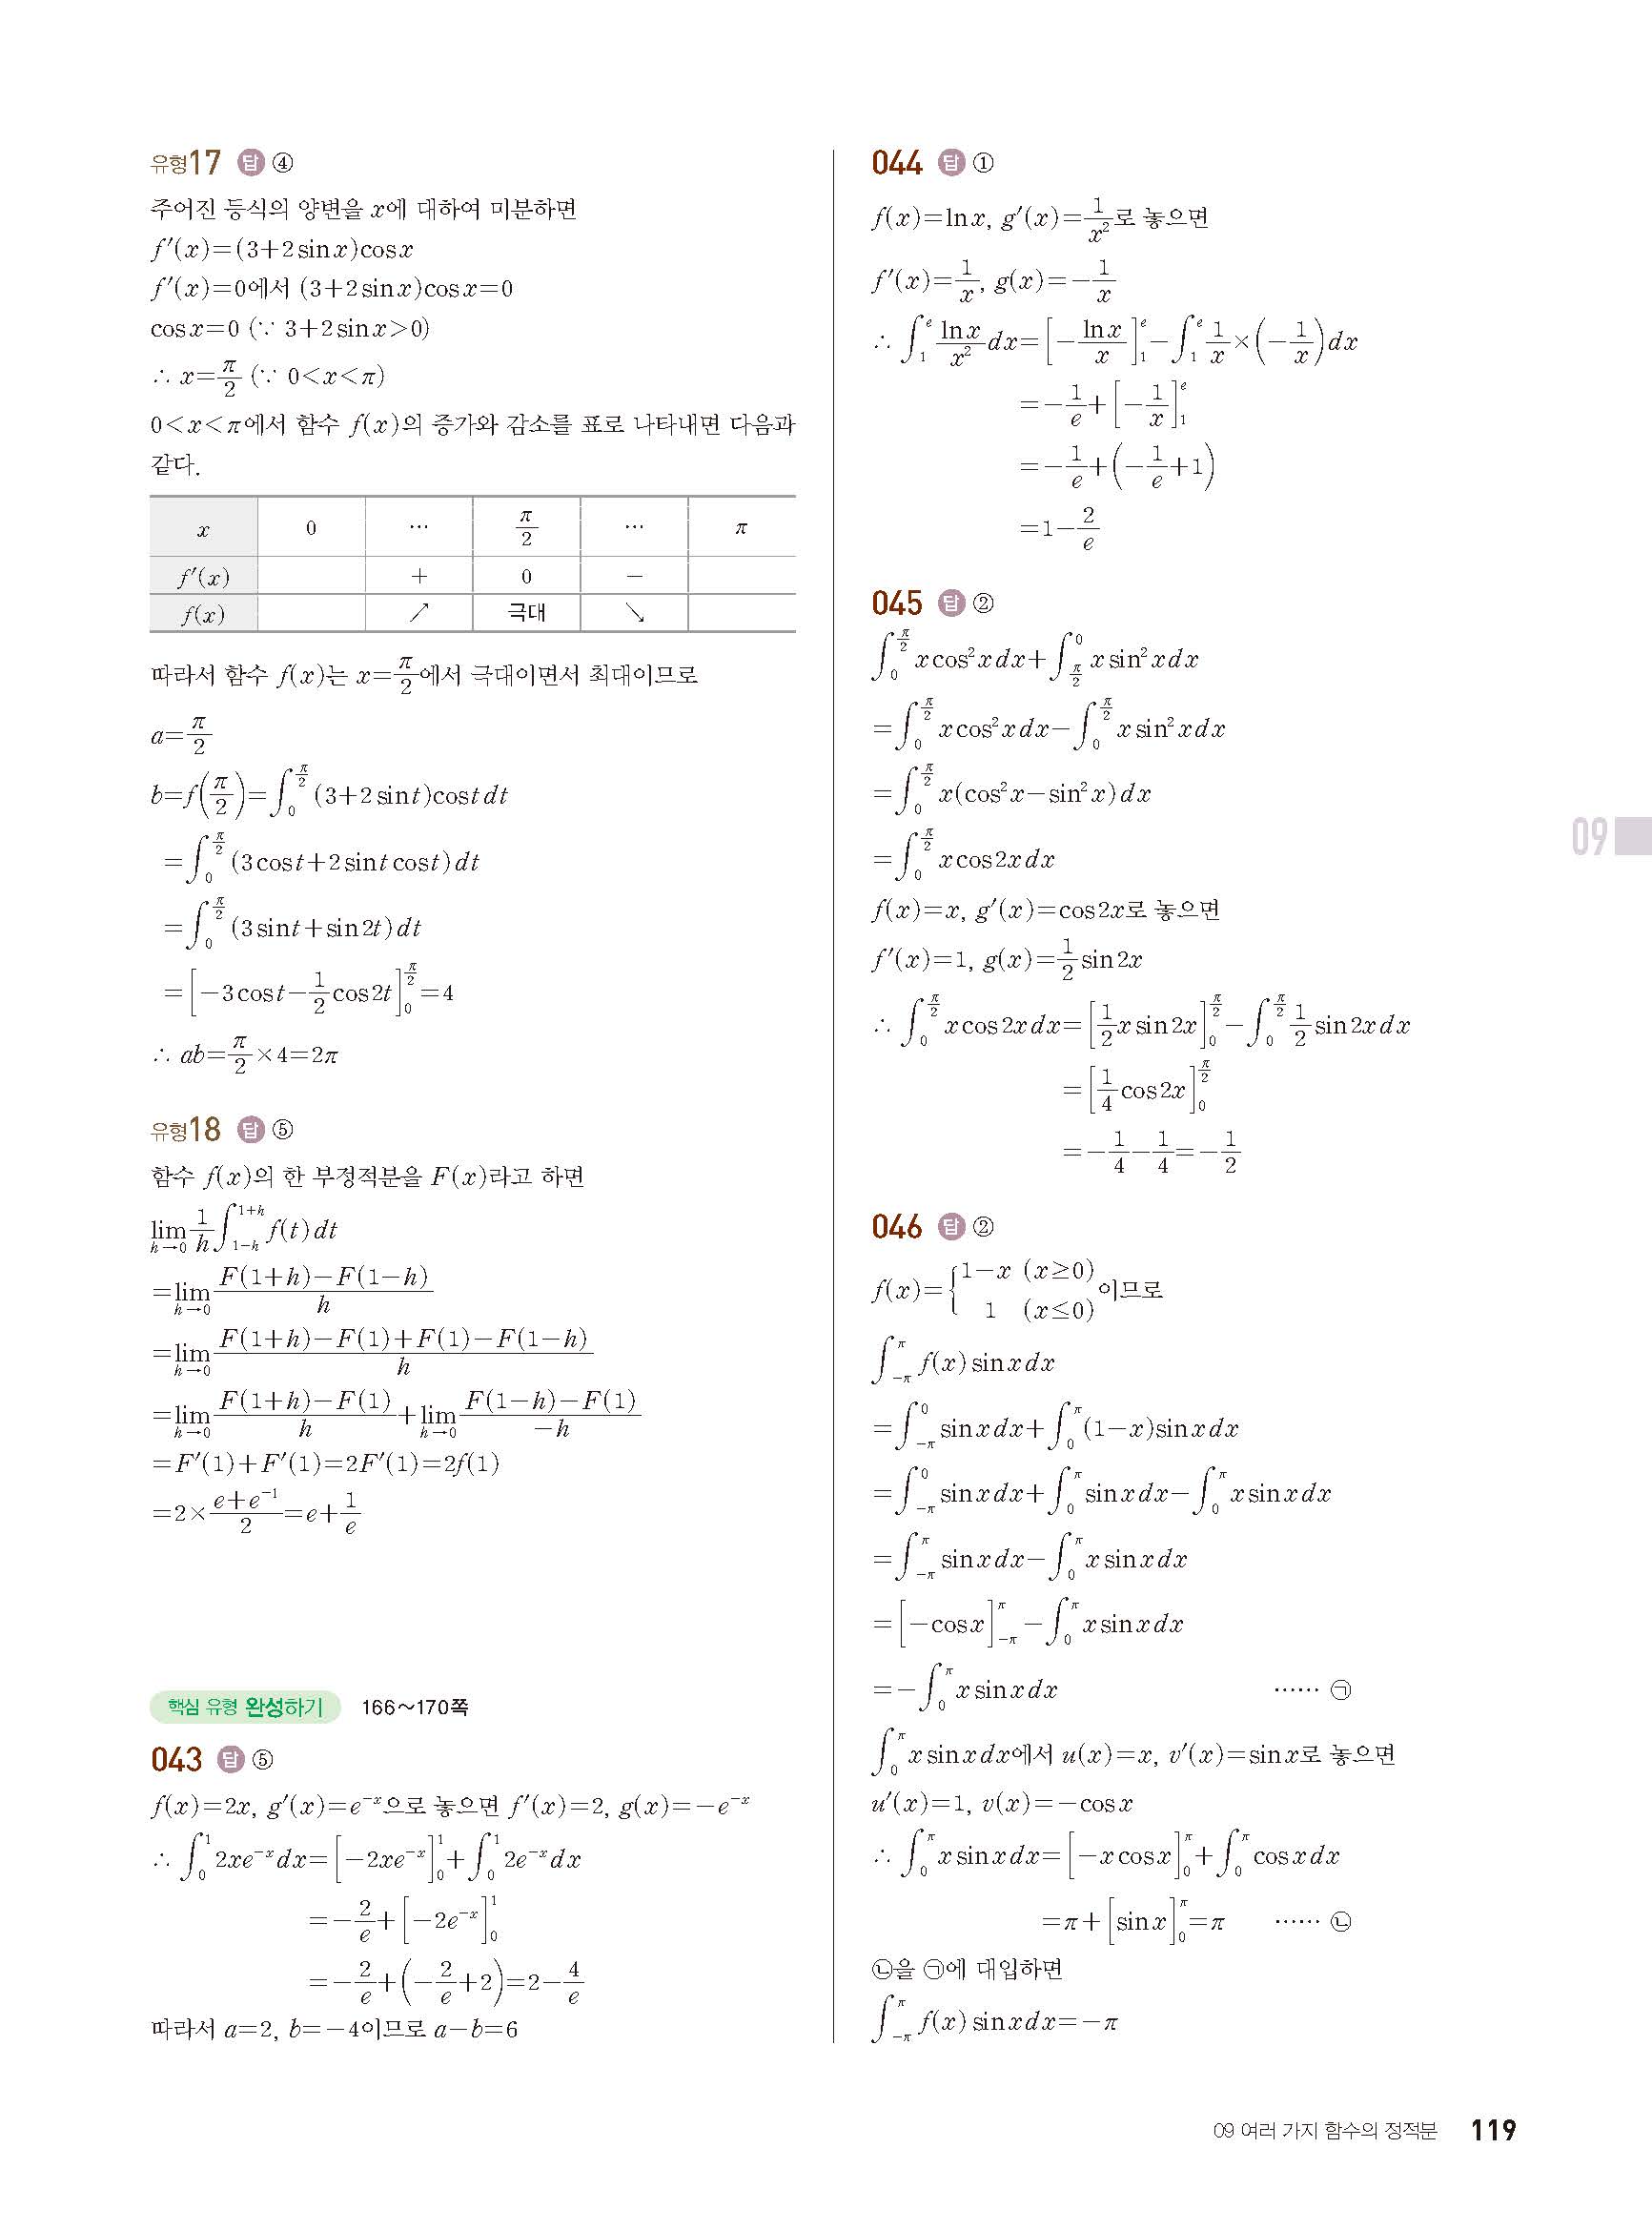 유형17 답 ④
주어진 등식의 양변을 x에 대하여 미분하면
f′(x)=(3+2sinx)cosx
f′(x)=0에서 (3+2sinx)cosx=0
cosx=0 (∵ 3+2sinx>0)
∴ x=π/2 (∵ 0<x<π)
0<x<π에서 함수 f(x)의 증가와 감소를 표로 나타내면 다음과
같다.
x 0 ⋯ π/2 ⋯ π
f′(x) + 0 −
f(x) ↗ 극대 ↘
따라서 함수 f(x)는 x=π/2에서 극대이면서 최대이므로
a=π/2
b=f(π/2)=∫_0^{π/2} (3+2sint)costdt
=∫_0^{π/2} (3cost+2sintcost)dt
=∫_0^{π/2} (3sint+sin2t)dt
=[−3cost−1/2 cos2t]_0^{π/2}=4
∴ ab=π/2×4=2π
유형18 답 ⑤
함수 f(x)의 한 부정적분을 F(x)라고 하면
lim_{h→0} 1/h ∫_{1−h}^{1+h} f(t)dt
=lim_{h→0} {F(1+h)−F(1−h)}/h
=lim_{h→0} {F(1+h)−F(1)+F(1)−F(1−h)}/h
=lim_{h→0} {F(1+h)−F(1)}/h+lim_{h→0} {F(1−h)−F(1)}/{−h}
=F′(1)+F′(1)=2F′(1)=2f(1)
=2×(e+e^{−1})/2=e+1/e
핵심 유형 완성하기 166~170쪽
043 답 ⑤
f(x)=2x, g′(x)=e^{−x}으로 놓으면 f′(x)=2, g(x)=−e^{−x}
∴ ∫_0^1 2xe^{−x}dx=[−2xe^{−x}]_0^1+∫_0^1 2e^{−x}dx
=−2/e+[−2e^{−x}]_0^1
=−2/e+(−2/e+2)=2−4/e
따라서 a=2, b=−4이므로 a−b=6
044 답 ①
f(x)=lnx, g′(x)=1/x²로 놓으면
f′(x)=1/x, g(x)=−1/x
∴ ∫_1^e lnx/x² dx=[−lnx/x]_1^e−∫_1^e 1/x×(−1/x)dx
=−1/e+[−1/x]_1^e
=−1/e+(−1/e+1)
=1−2/e
045 답 ②
∫_0^{π/2} xcos²xdx+∫_{π/2}^0 xsin²xdx
=∫_0^{π/2} xcos²xdx−∫_0^{π/2} xsin²xdx
=∫_0^{π/2} x(cos²x−sin²x)dx
=∫_0^{π/2} xcos2xdx
f(x)=x, g′(x)=cos2x로 놓으면
f′(x)=1, g(x)=1/2 sin2x
∴ ∫_0^{π/2} xcos2xdx=[1/2 xsin2x]_0^{π/2}−∫_0^{π/2} 1/2 sin2xdx
=[1/4 cos2x]_0^{π/2}
=−1/4−1/4=−1/2
046 답 ②
f(x)={1−x (x≥0), 1 (x≤0)이므로
∫_{−π}^π f(x)sinxdx
=∫_{−π}^0 sinxdx+∫_0^π (1−x)sinxdx
=∫_{−π}^0 sinxdx+∫_0^π sinxdx−∫_0^π xsinxdx
=∫_{−π}^π sinxdx−∫_0^π xsinxdx
=[−cosx]_{−π}^π−∫_0^π xsinxdx
=−∫_0^π xsinxdx ⋯⋯ ㉠
∫_0^π xsinxdx에서 u(x)=x, v′(x)=sinx로 놓으면
u′(x)=1, v(x)=−cosx
∴ ∫_0^π xsinxdx=[−xcosx]_0^π+∫_0^π cosxdx
=π+[sinx]_0^π=π ⋯⋯ ㉡
㉡을 ㉠에 대입하면
∫_{−π}^π f(x)sinxdx=−π
09
09 여러 가지 함수의 정적분 119